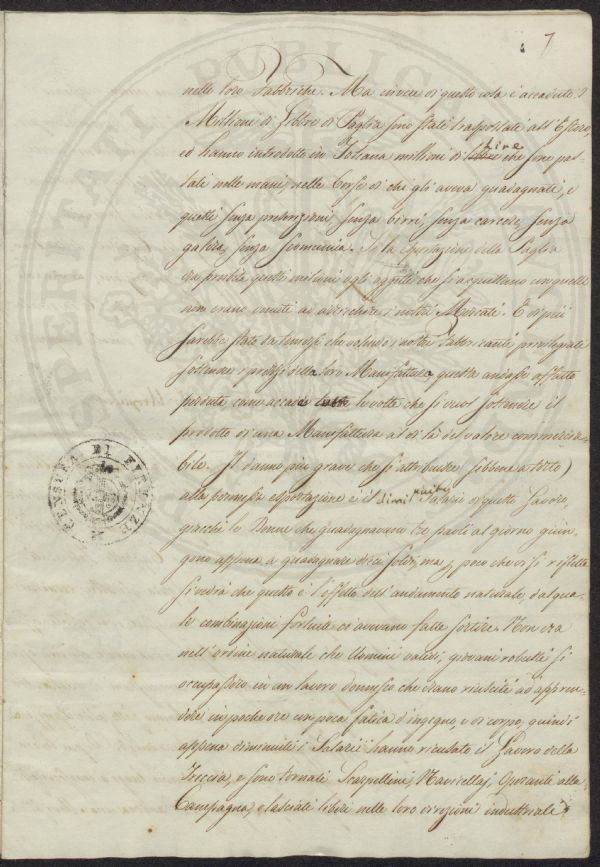 7
nelle loro Fabbriche. Ma invece di questo cosa è accaduto?
Millioni di Libbre di Paglia sono state trasportate all'Estero,
ed hanno introdotto in Toscana millioni di Lire che sono re=
stati nelle mani, nelle Borse di chi gli aveva guadagnati, e
questi senza pretenzioni, senza birri, senza carcere, senza
galera, senza Scomunica. Se la esportazione della Paglia
era proibita, questi milioni egli oggetti che si acquistano con quelli
non erano venuti ad arricchire i nostri Mercati. E di più
sarebbe stato da temersi che volendo i nostri Fabbricanti privilegiati
sostenere i prezzi della loro Manifattura, questa andasse affatto
perduta come accade tutte le volte che si vuol sostenere il
prodotto di una Manifattura al di là del valore commercia=
bile. Il danno più grave che si attribuisce (sebbene a torto)
alla permessa esportazione è il diminuito Salario di questo Lavoro,
giacchè le Donne che guadagnavano tre paoli al giorno giun=
gono appena a guadagnare dieci soldi, ma per poco che vi si rifletta
si vedrà che questo è l'effetto dell'andamento naturale, dal qua=
le combinazioni fortuite ci avevano fatto sortire. Non era
nell'ordine naturale che Uomini validi, giovani robusti si
occupassero in un lavoro donnesco che erano riusciti ad appren=
dere in poche ore con poca fatica d'ingegno, e di corpo, quindi
appena diminuiti i Salarii hanno ricusato il Lavoro della
Treccia, e sono tornati Scarpellini, Navicellaj, Operanti alla
Campagna, e lasciati liberi nelle loro direzioni industriali
CENSURA DI FIRENZE